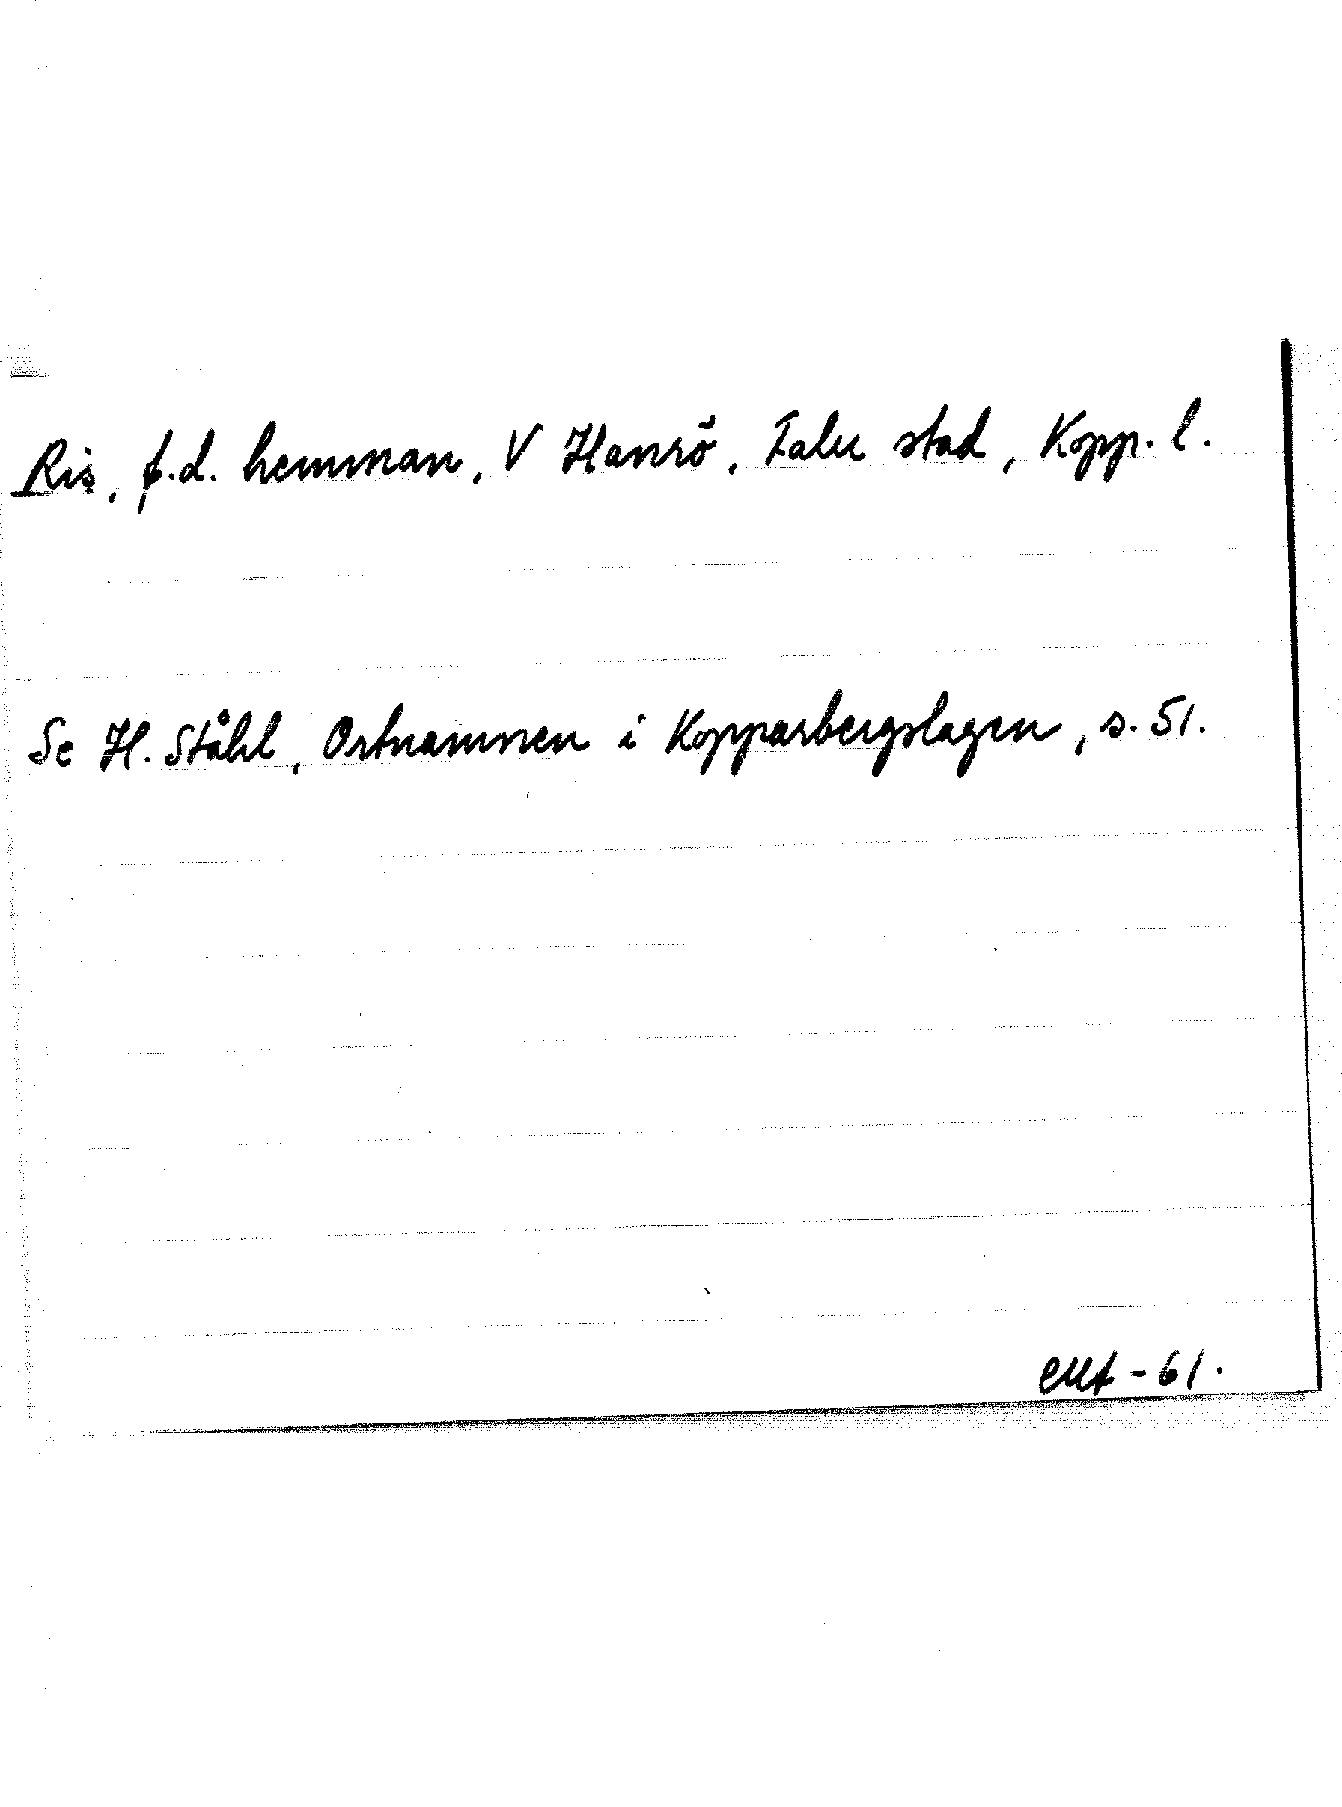 Ris, f.d. hemman, V Hanrö, Falu stad, Kopp. l.
Se H. Ståhl, Ortnamnen i Kopparbergslagen, s. 51.
-61.